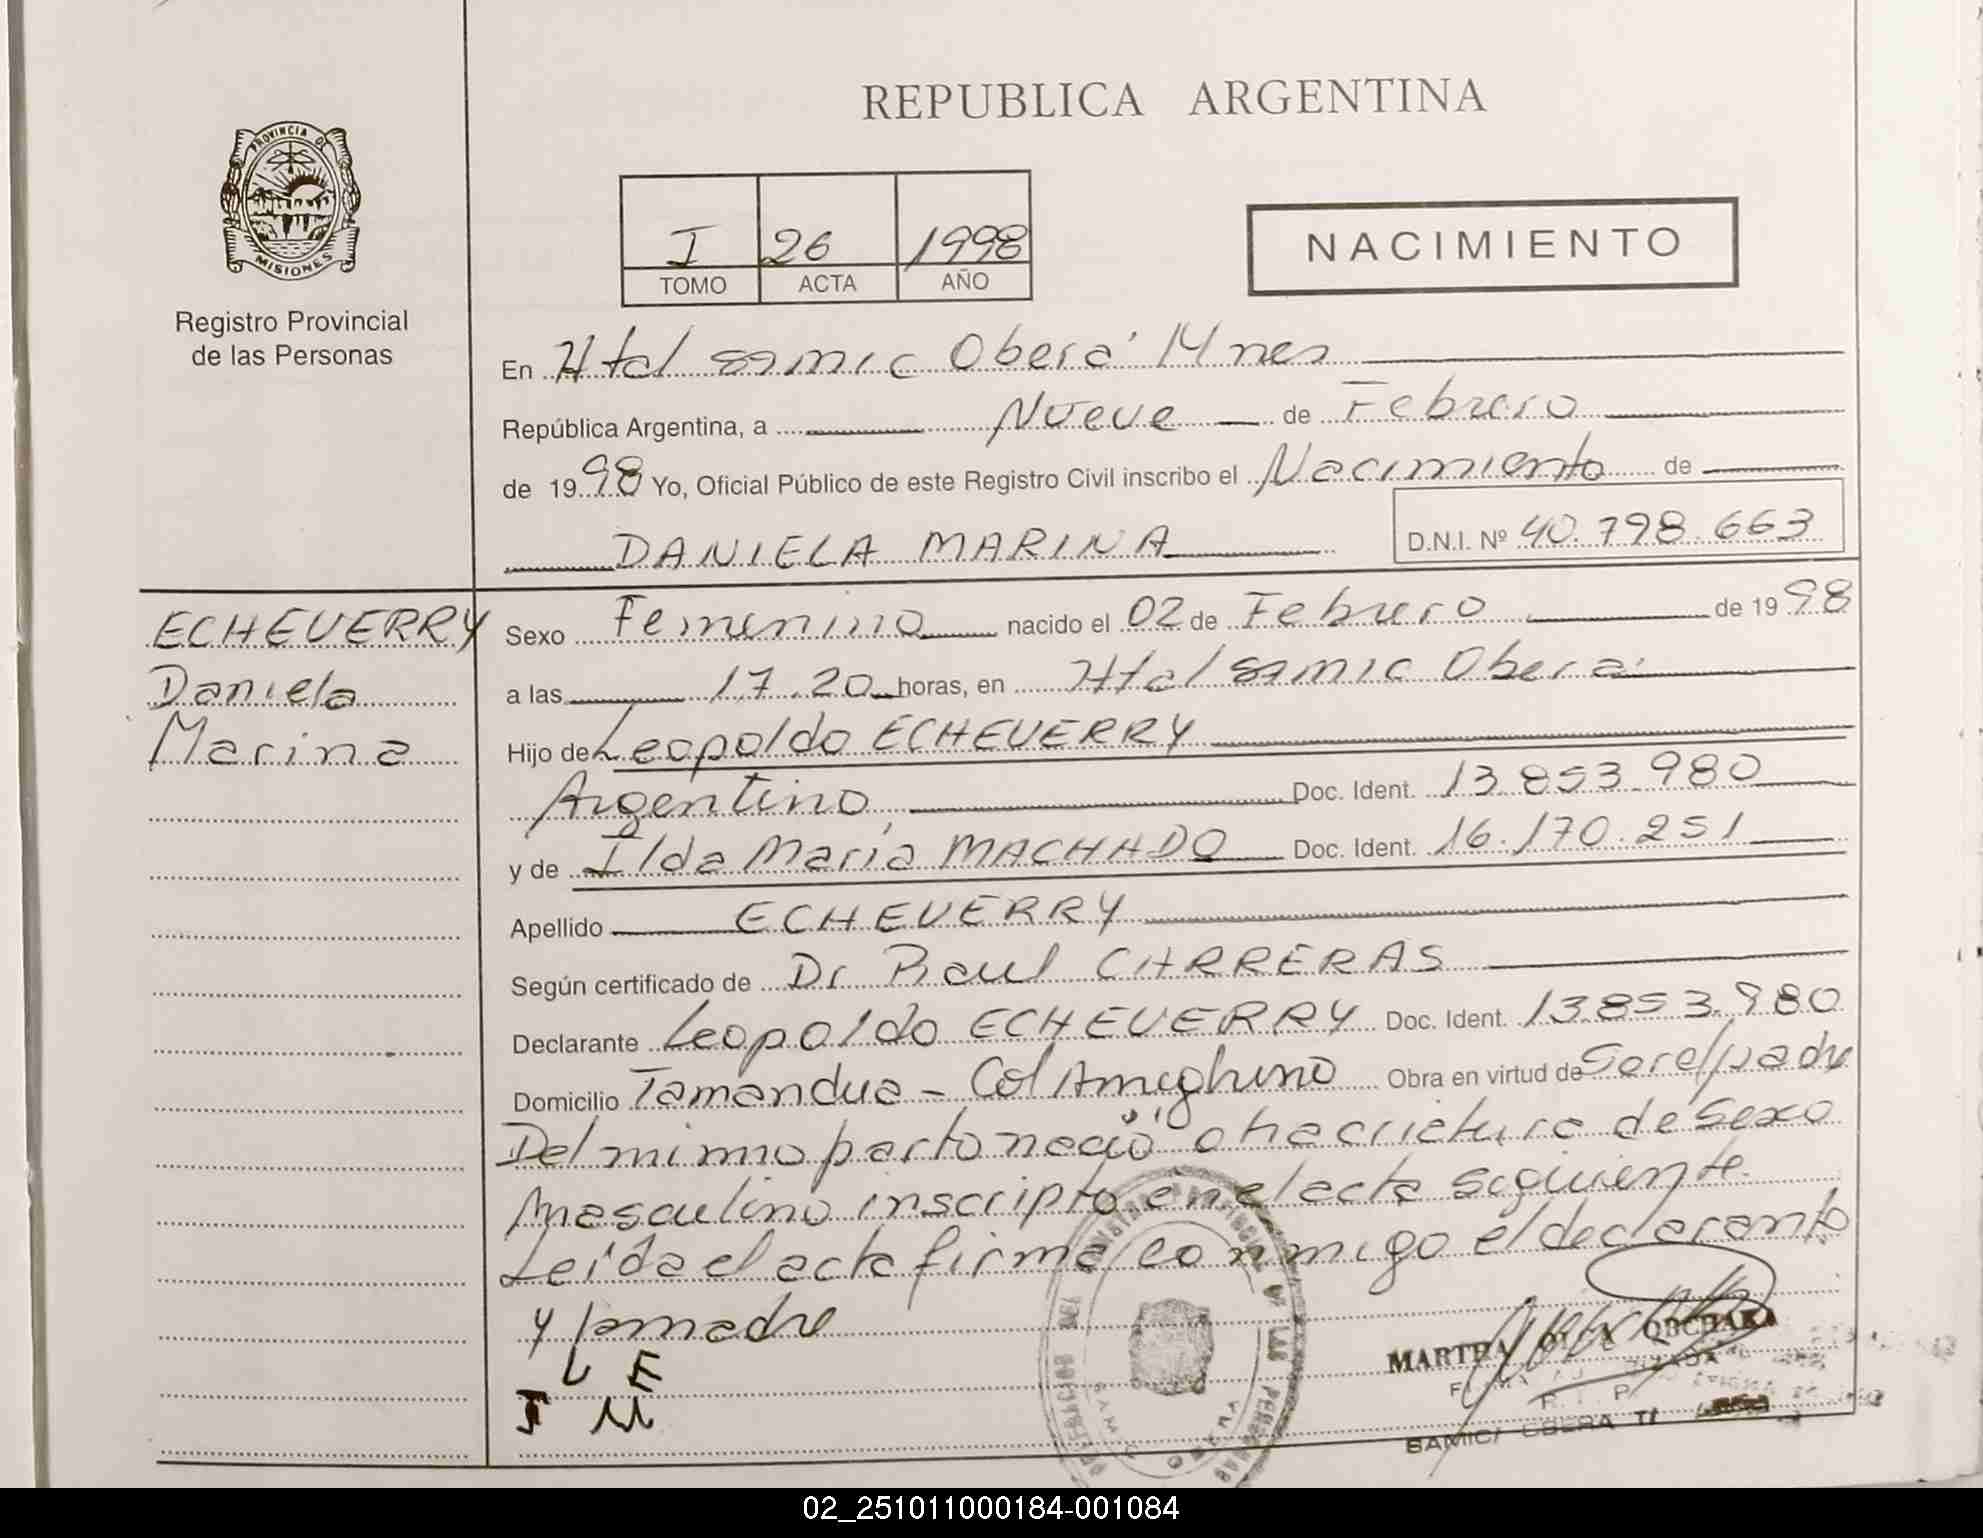 REPUBLICA ARGENTINA
PROVINCIA DE
MISIONES
Registro Provincial
de las Personas
I 26 1998
TOMO ACTA AÑO
NACIMIENTO
En Htal samic Oberá Mnes
República Argentina, a Nueve de Febrero
de 1998 Yo, Oficial Público de este Registro Civil inscribo el Nacimiento de
DANIELA MARINA D.N.I. Nº 40.798.663
ECHEVERRY
Daniela
Marina
Sexo Femenino nacido el 02 de Febrero de 1998
a las 17.20 horas, en Htal samic Oberá
Hijo de Leopoldo ECHEVERRY
Argentino Doc. Ident. 13.853.980
y de Ilda María MACHADO Doc. Ident. 16.170.251
Apellido ECHEVERRY
Según certificado de Dr Raul CARRERAS
Declarante Leopoldo ECHEVERRY Doc. Ident. 13.853.980
Domicilio Tamandua - Col Ameghino Obra en virtud de Ser el padre
Del mismo parto nació otra criatura de sexo
Masculino inscripto en el acta siguiente
Leída el acta firma conmigo el declarante
y la madre
L E
I M
MARTHA OLGA OBCHAKA
SAMIC OBERA
02_251011000184-001084